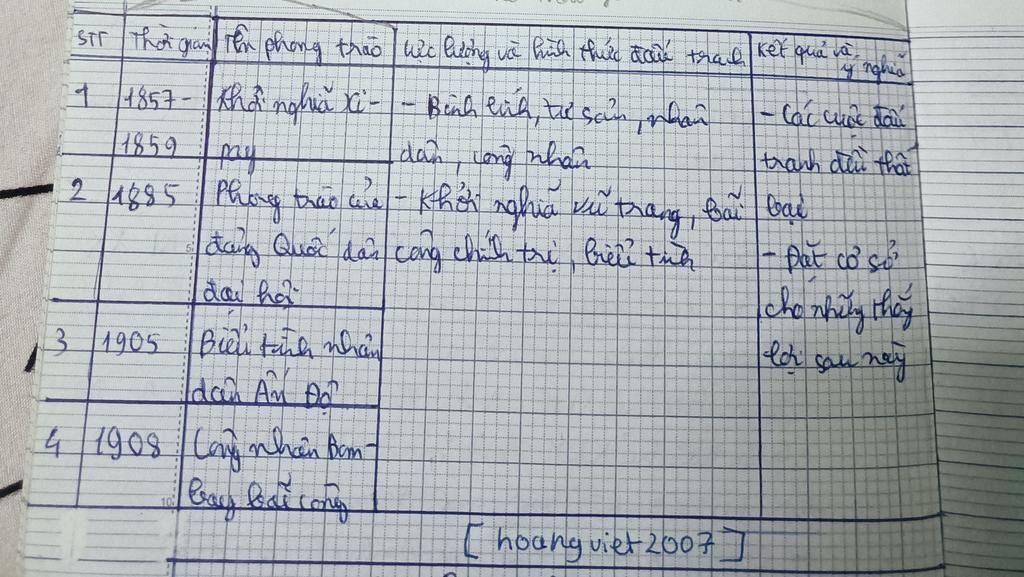 STT Thời gian Tên phong thào Lực lượng và hình thức đấu tranh Kết quả và ý nghĩa
1 1857- Khởi nghĩa Xi- - Binh lính, tư sản, nhân - Các cuộc đấu
1859 pay dân, công nhân tranh đều thất
2 1885 Phong trào của - Khởi nghĩa vũ trang, bãi bại
đảng Quốc dân công chính trị, biểu tình - Đặt cơ sở
đại hội cho những thắng
3 1905 Biểu tình nhân lợi sau này
dân Ấn Độ
4 1908 Công nhân Bom-
bay bãi công
[hoangviet2007]